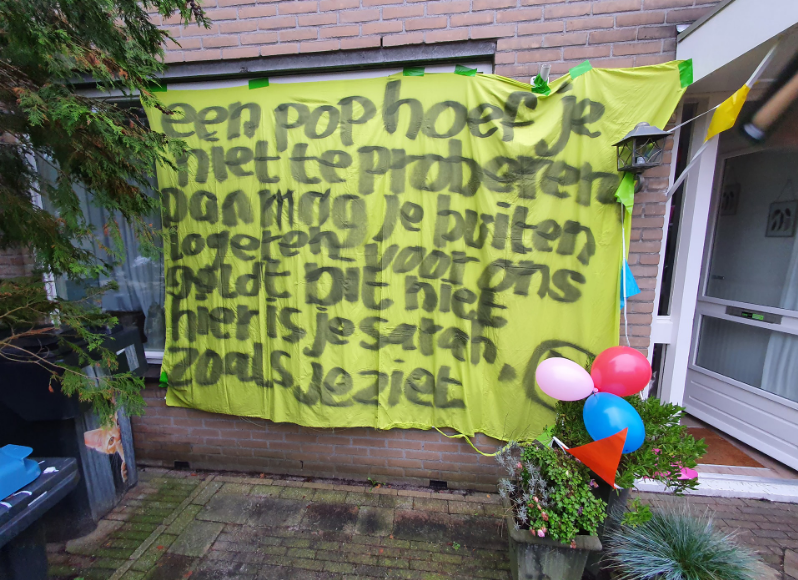 een pop hoef je
niet te proberen
dan mag je buiten
logeren voor ons
geldt dit niet
hier is je sarah,
zoals je ziet.